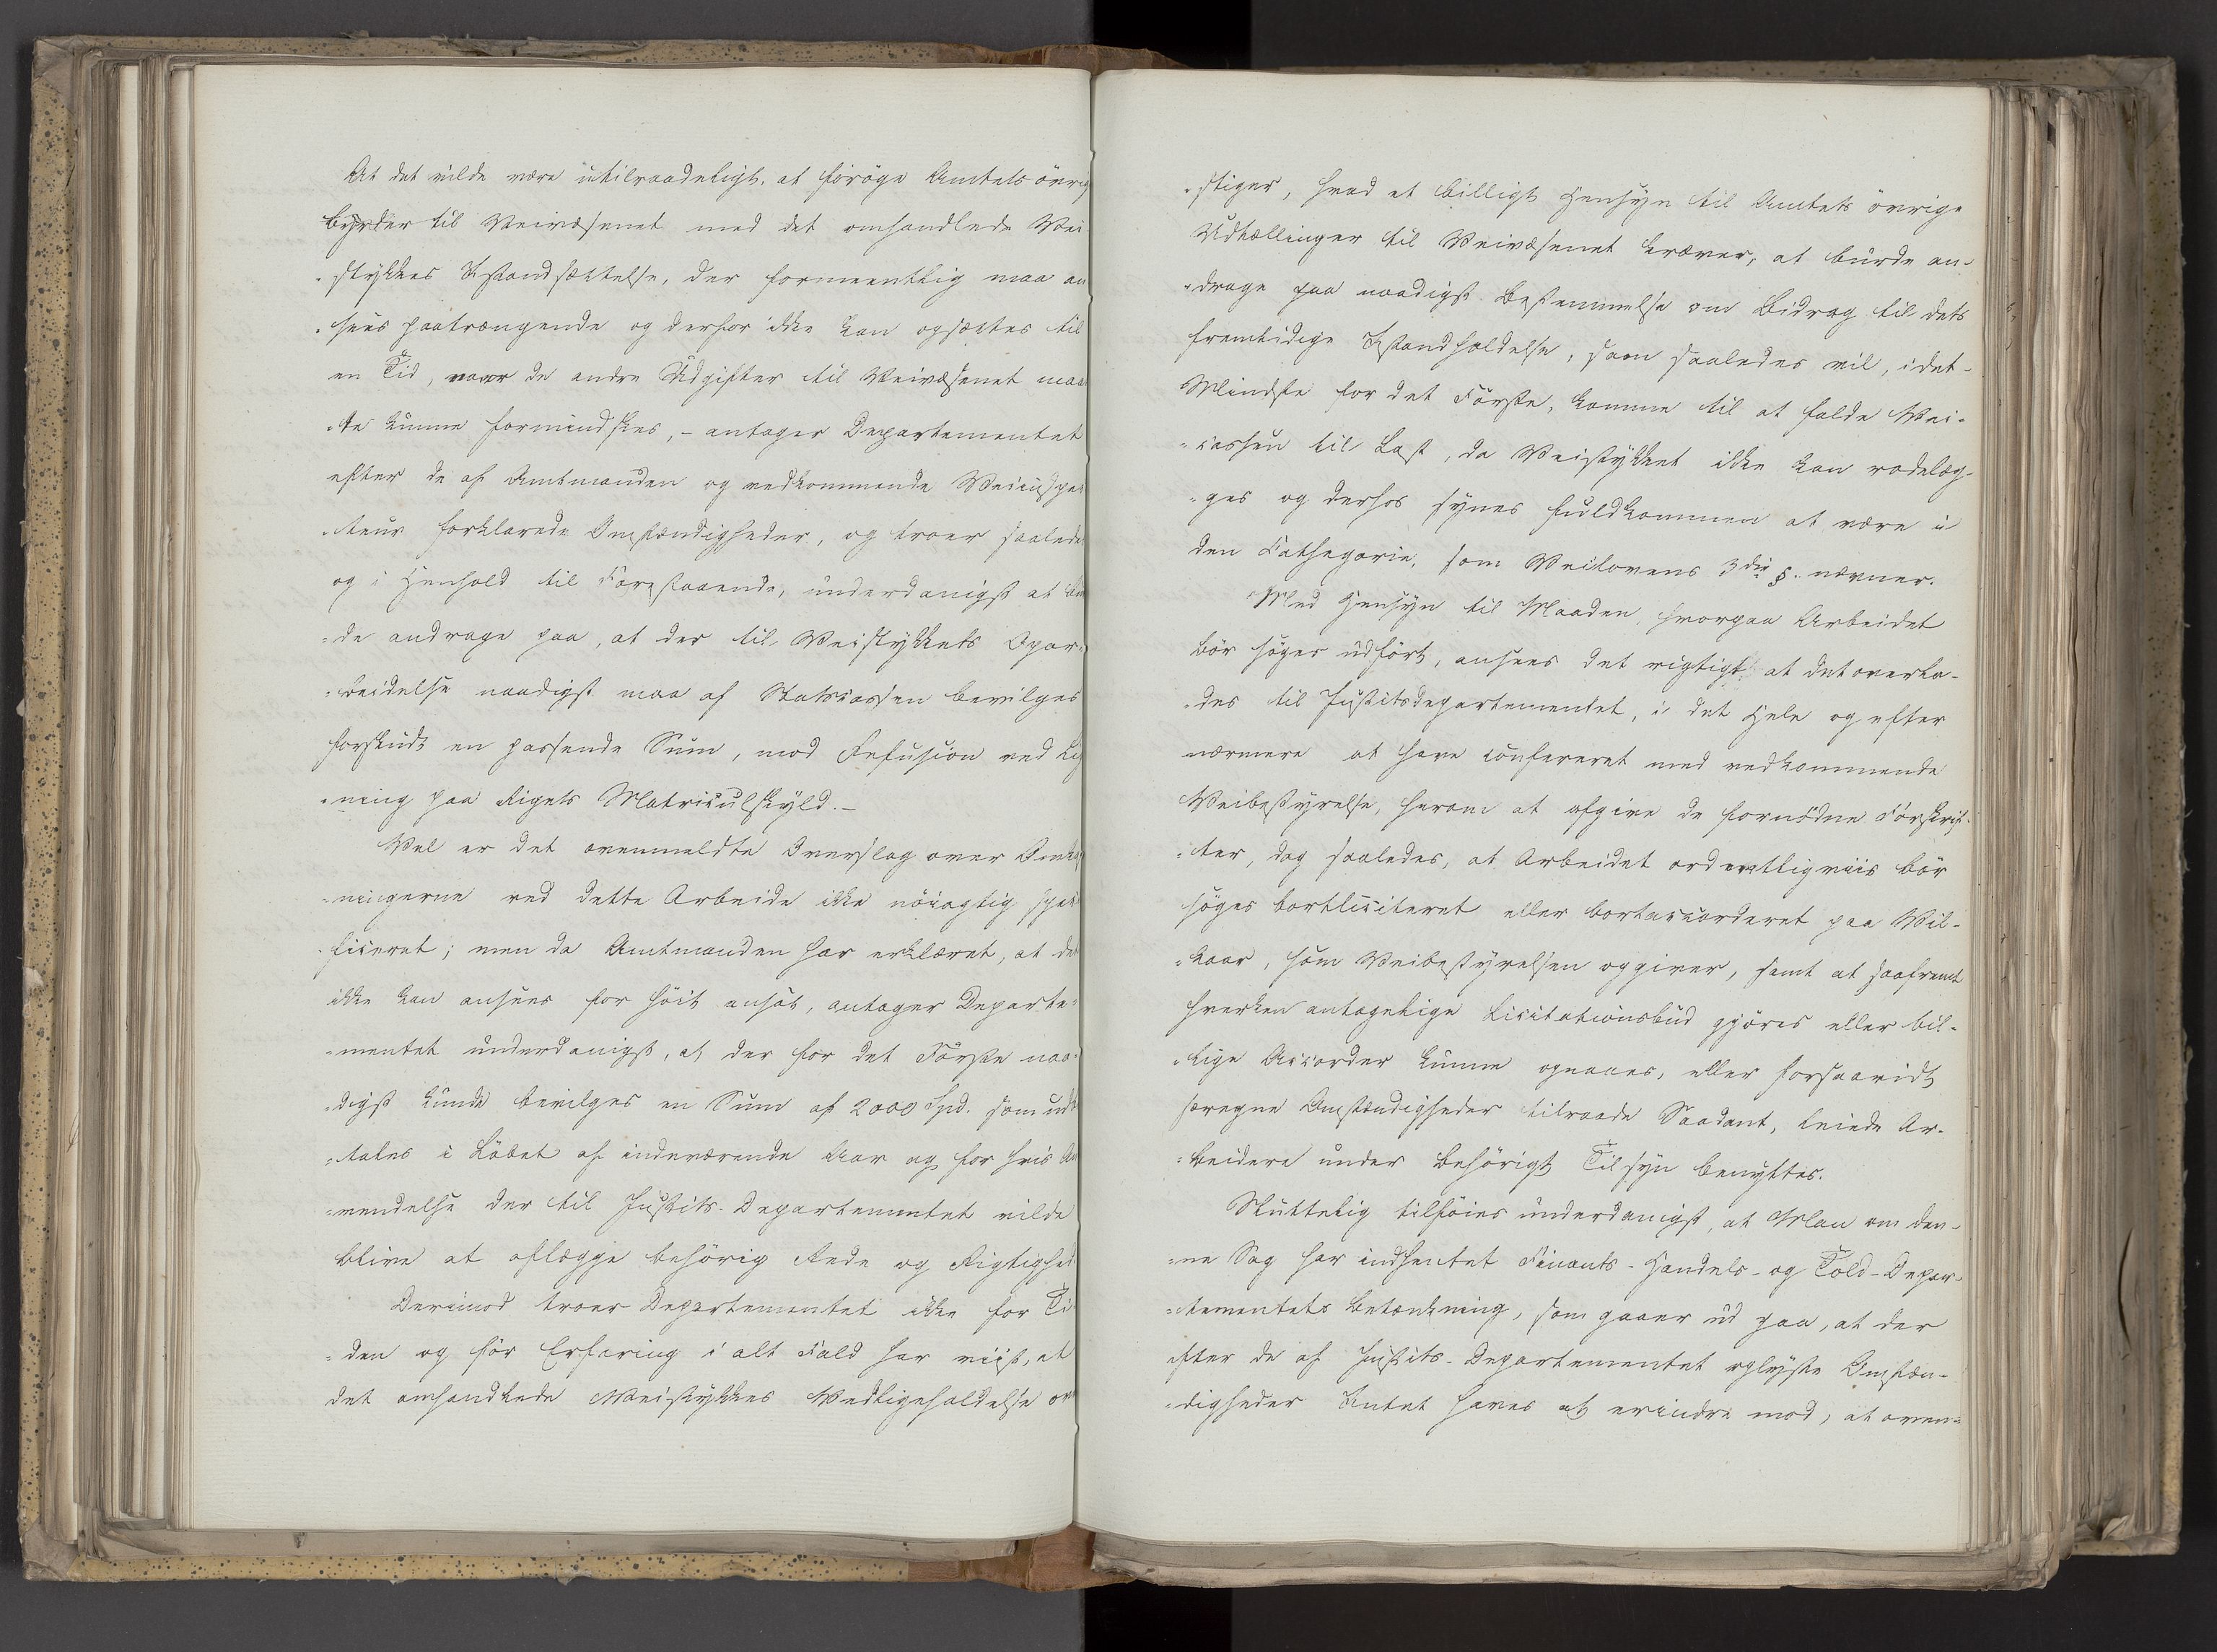 At det vilde være utilraadeligt, at forøge Amtets øvrig
Byrder til Veivæsenet med det omhandlede Vei
-stykkes Istandsættelse, der formeentlig maa an
-sees paatrængende og derfor ikke kan opsættes til
en Tid, naar de andre Udgifter til Veivæsenet maa
-te kunne formindskes, - antager Departementet
efter de af Amtmanden og vedkommende Veiinspec
-teur forklarede Omstændigheder, og troer saalede
og i Henhold til Forestaaende, underdanigst at bur
-de andrage paa, at der til Veistykkets Opar-
-beidelse naadigst maa af Statscassen bevilges
forskudt en passende Sum, mod Refusion ved Lig
-ning paa Rigets Matriculskyld.-
Vel er det ovenmeldte Overslag over Omkost
-ningerne ved dette Arbeide ikke nöiagtig speci
-ficeret; men da Amtmanden har erklæret, at det
ikke kan ansees for høit ansat, antager Departe-
-mentet underdanigst, at der for det Første naa-
-digst kunde bevilges en Sum af 2000 Spd. som ud
-tales i Løbet af indeværende Aar og for hvis An
-vendelse der til Justits-Departementet vilde
blive at aflægge behørig Rede og Rigtighed
Derimod troer Departementet ikke for Ti
-den og før Erfaring i alt Fald har viist, at
det omhandlede Veistykkes Vedligeholdelse over
-stiger, hvad et billigt Hensyn til Amtets øvrige
Udtællinger til Veivæsenet kræver, at burde an-
-drage paa naadigst Bestemmelse om Bidrag til dets
fremtidige Istandholdelse, som saaledes vil, idet-
Mindste for det Første, komme til at falde Vei-
-cassen til Last, da Veistykket ikke kan rodelæg-
-ges og derhos synes fuldkommen at være i
den Cathegorie, som Veilovens 3die §. nævner.
Med Hensyn til Maaden, hvorpaa Arbeidet
bør søges udført, ansees det rigtigt, at det overla-
-des til Justitsdepartementet, i det Hele og efter
nærmere at have confereret med vedkommende
Veibestyrelse, herom at afgive de fornødne Forskrif-
-ter, dog saaledes, at Arbeidet ordentligviis bør
søges bortliciteret eller bortaccorderet paa Vil-
-kaar, som Veibestyrelsen opgiver, samt at saafremt
hverken antagelige Licitationsbud gjøres eller bil-
-lige Accorder kunne opnaaes, eller forsaavidt
særegne Omstændigheder tilraade Saadant, leiede Ar-
-beidere under behørigt Tilsyn benyttes.
Sluttelig tilføies underdanigst, at Man om den-
-ne Sag har indhentet Finants- Handels- og Told-Depar-
-tementets Betænkning, som gaaer ud paa, at der
efter de af Justits-Departementet oplyste Omstæn-
-digheder Intet haves at erindre mod, at oven-